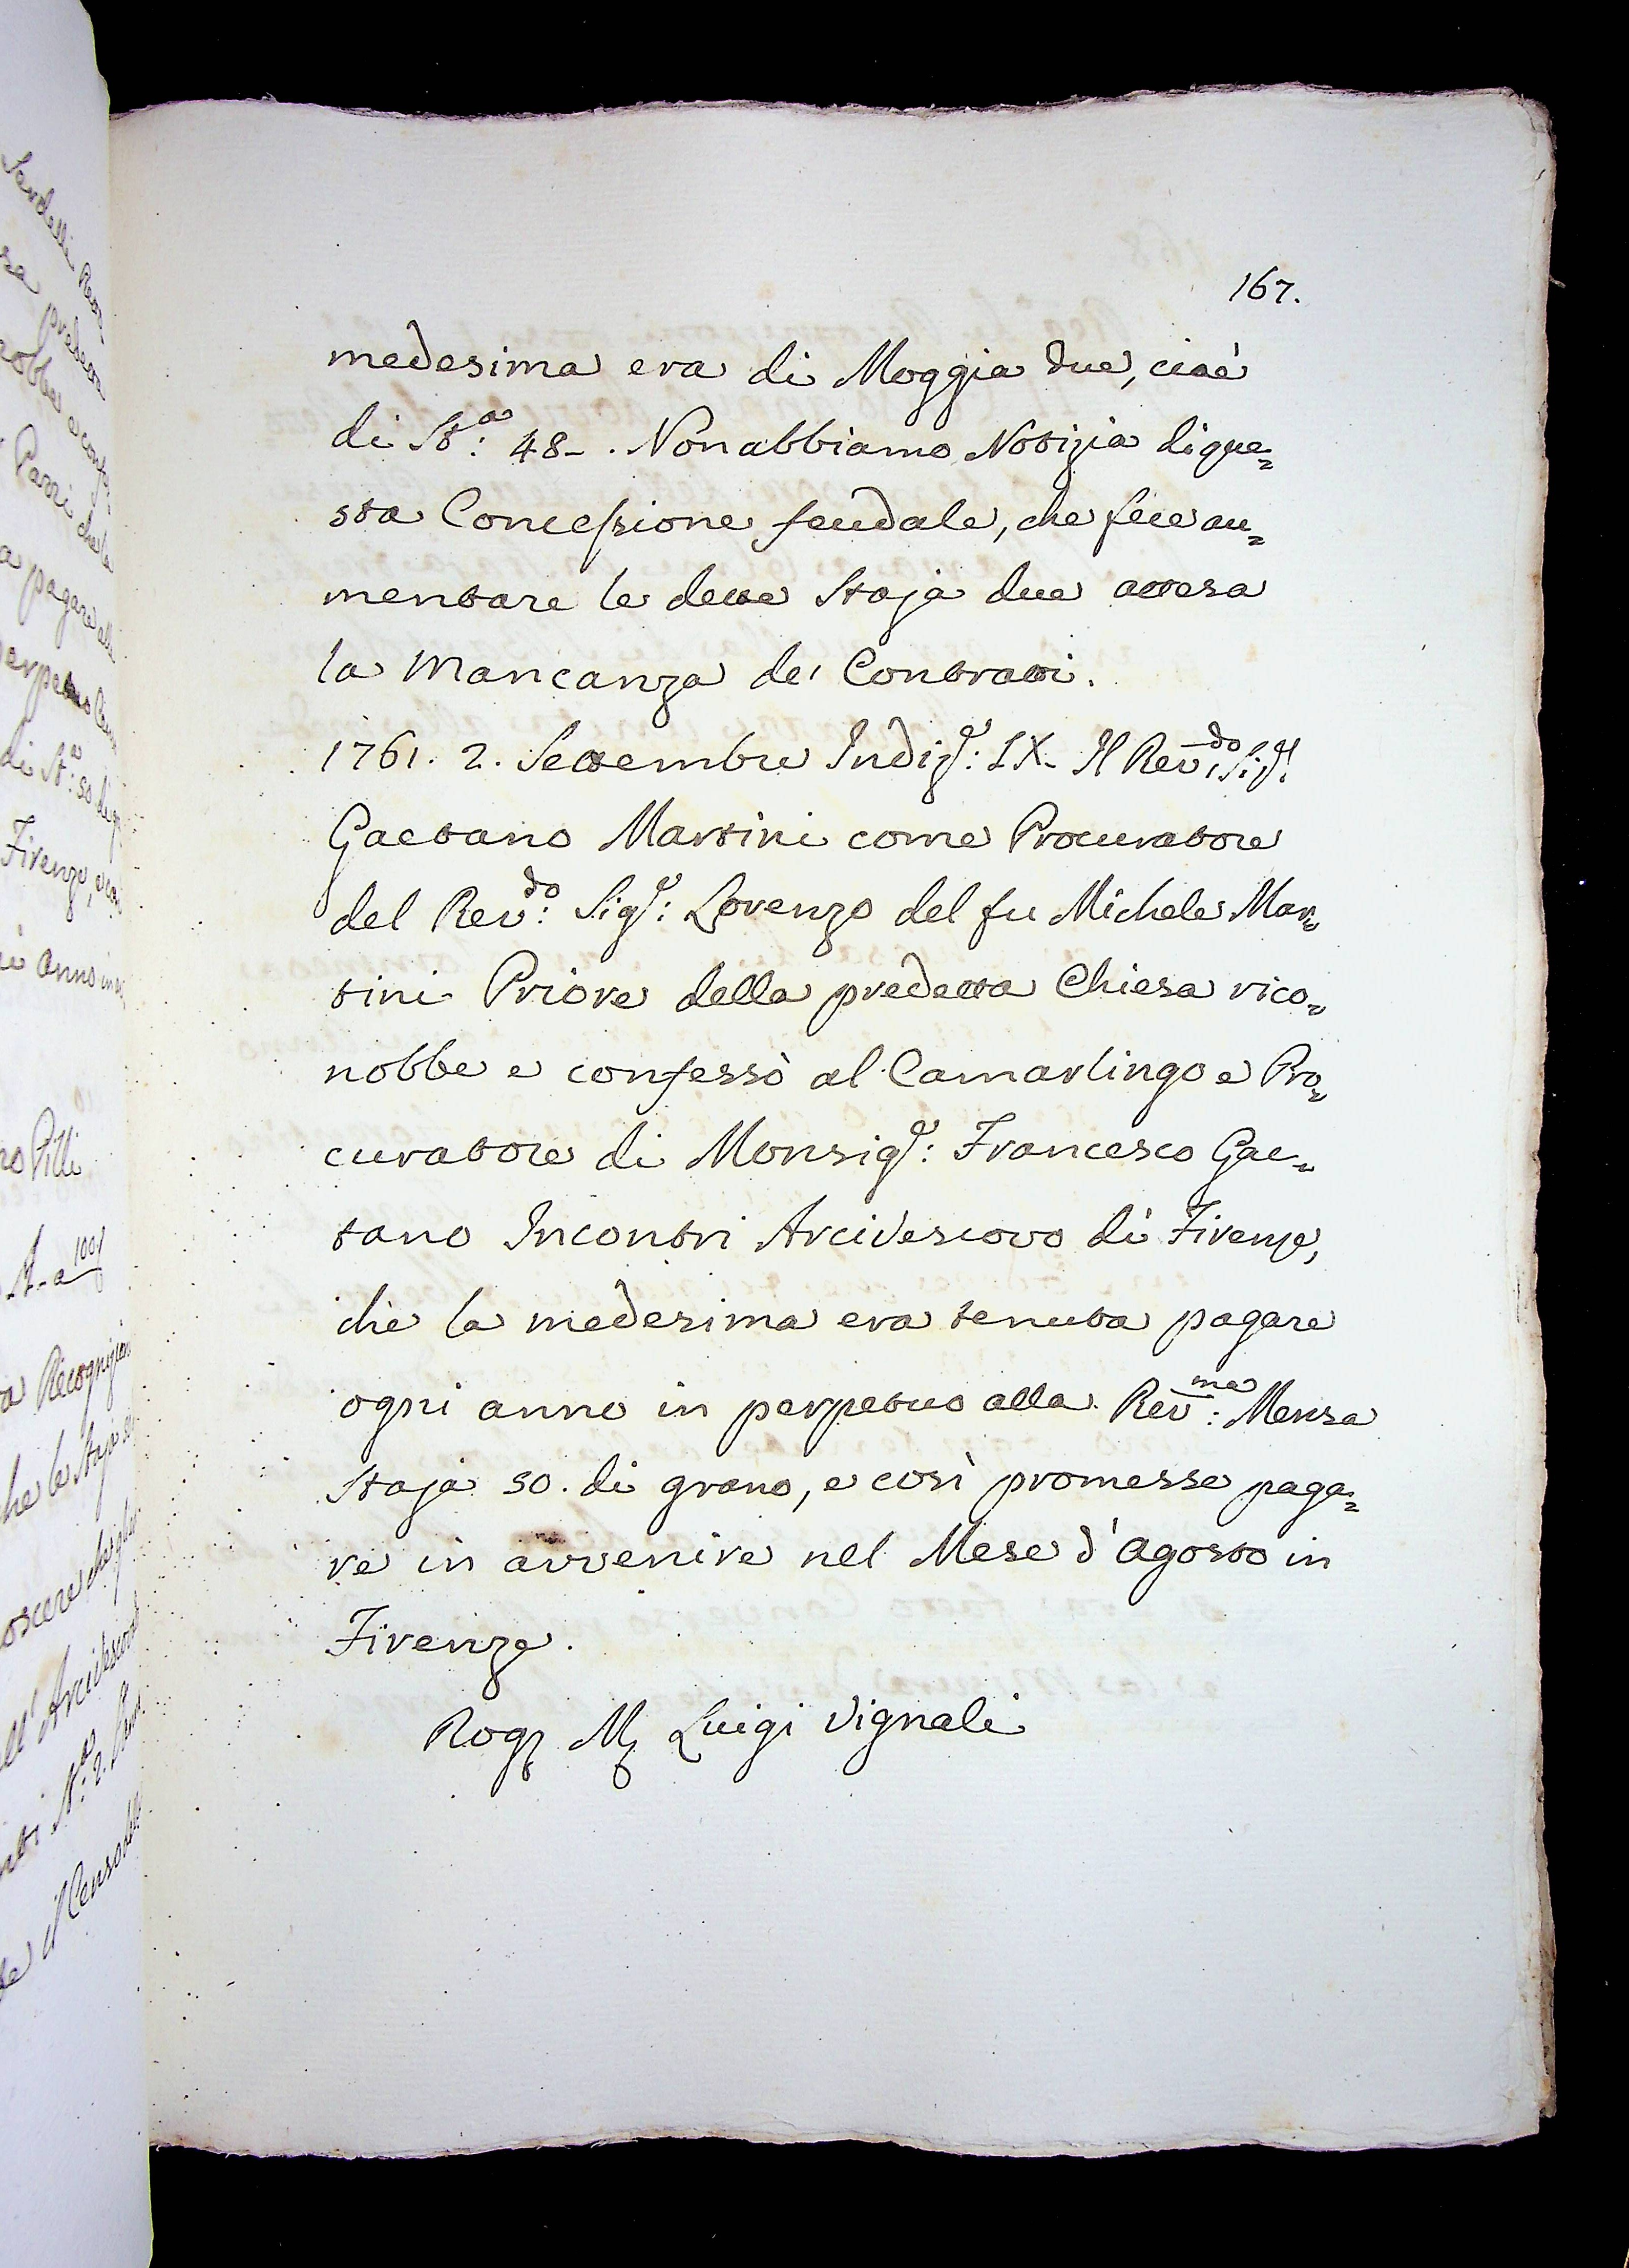 167.
medesima era di Moggia due, cioè
di St:ª 48-. Non abbiamo Notizia di que=
sta Concessione feudale, che fece au=
mentare le dette Staja due attesa
la Mancanza de' Contratti.
1761. 2. Settembre Indiz:ᵉ IX. Il Rev:ᵈᵒ Sig:ʳ
Gaetano Martini come Procuratore
del Rev:ᵈᵒ Sig:ʳ Lorenzo del fu Michele Mar=
tini Priore della predetta Chiesa rico=
nobbe e confessò al Camarlingo e Pro=
curatore di Monsig:ʳ Francesco Gae=
tano Incontri Arcivescovo di Firenze,
che la medesima era tenuta pagare
ogni anno in perpetuo alla Rev:ᵐᵃ Mensa
Staja 50. di grano, e così promesse paga=
re in avvenire nel Mese d'Agosto in
Firenze.
Rog. M. Luigi Vignali